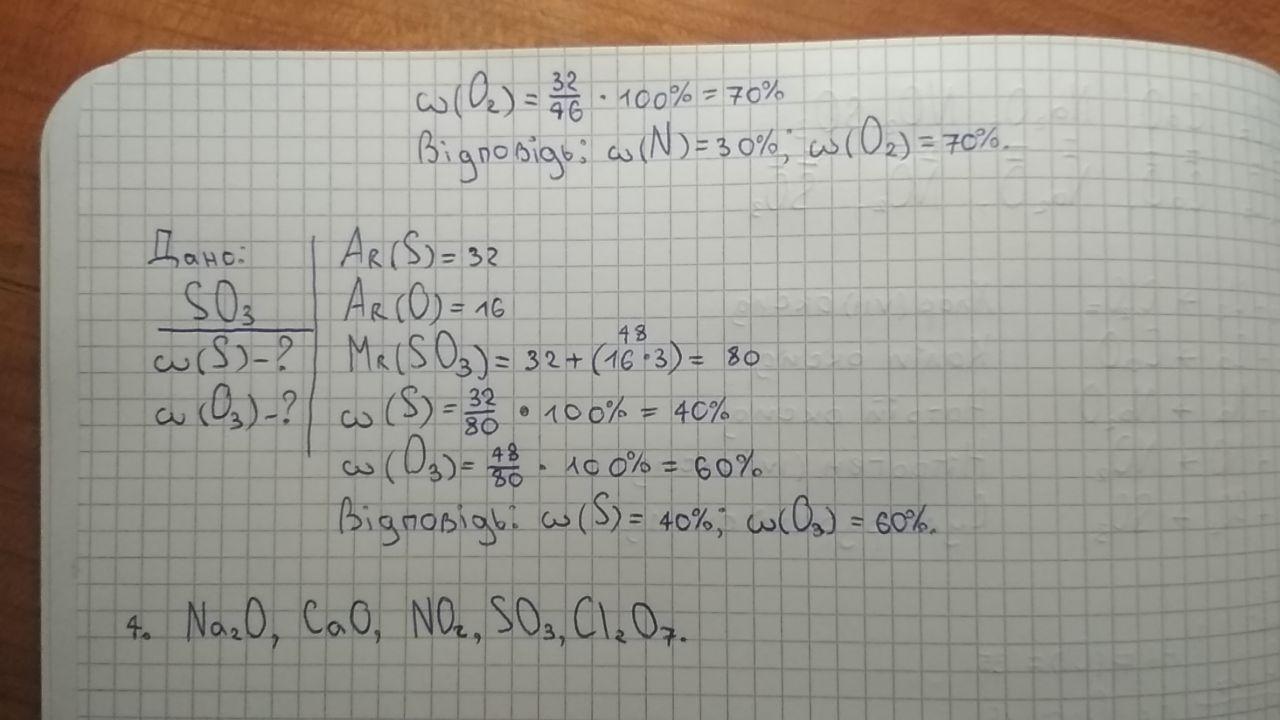 ω(O₂) = 32/46 · 100% = 70%
Відповідь: ω(N) = 30%; ω(O₂) = 70%.
Дано:
SO₃
ω(S) - ?
ω(O₃) - ?
AR(S) = 32
AR(O) = 16
48
MR(SO₃) = 32 + (16 · 3) = 80
ω(S) = 32/80 · 100% = 40%
ω(O₃) = 48/80 · 100% = 60%
Відповідь: ω(S) = 40%; ω(O₃) = 60%.
4. Na₂O, CaO, NO₂, SO₃, Cl₂O₇.